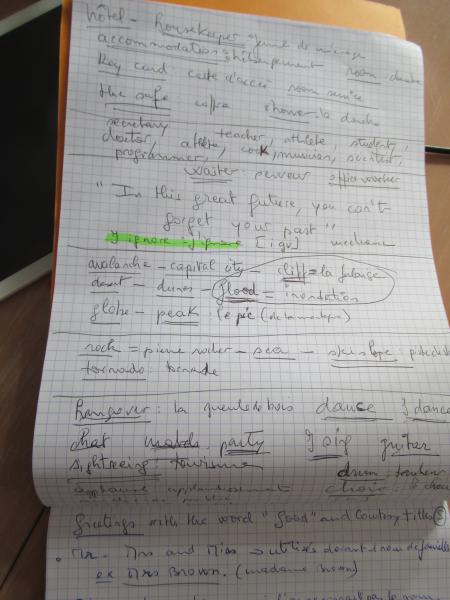 hôtel - housekeeper femme de ménage
accommodation: hébergement room chambre
Key card carte d'accès room service
the safe coffre shower: la douche
secretary
doctor, teacher, athlete, student,
programmer, athlète, cook, musician, scientist,
waiter: serveur office worker
"In this great future, you can't
forget your past"
I ignore: j'ignore mechanic
avalanche - capital city - cliff = la falaise
desert - dunes - flood = inondation
globe - peak: le pic (de la montagne)
rock = pierre rocher - sea - ski slope piste de
tornado tornade
hangover: la gueule de bois dance I dance
chat party I guitar
sightseeing: tourisme drum
choir:
Greetings with the word "good" and courtesy titles
• Mr. Mrs and Miss → utilisés devant nom de famille
ex Mrs Brown. (madame brown)